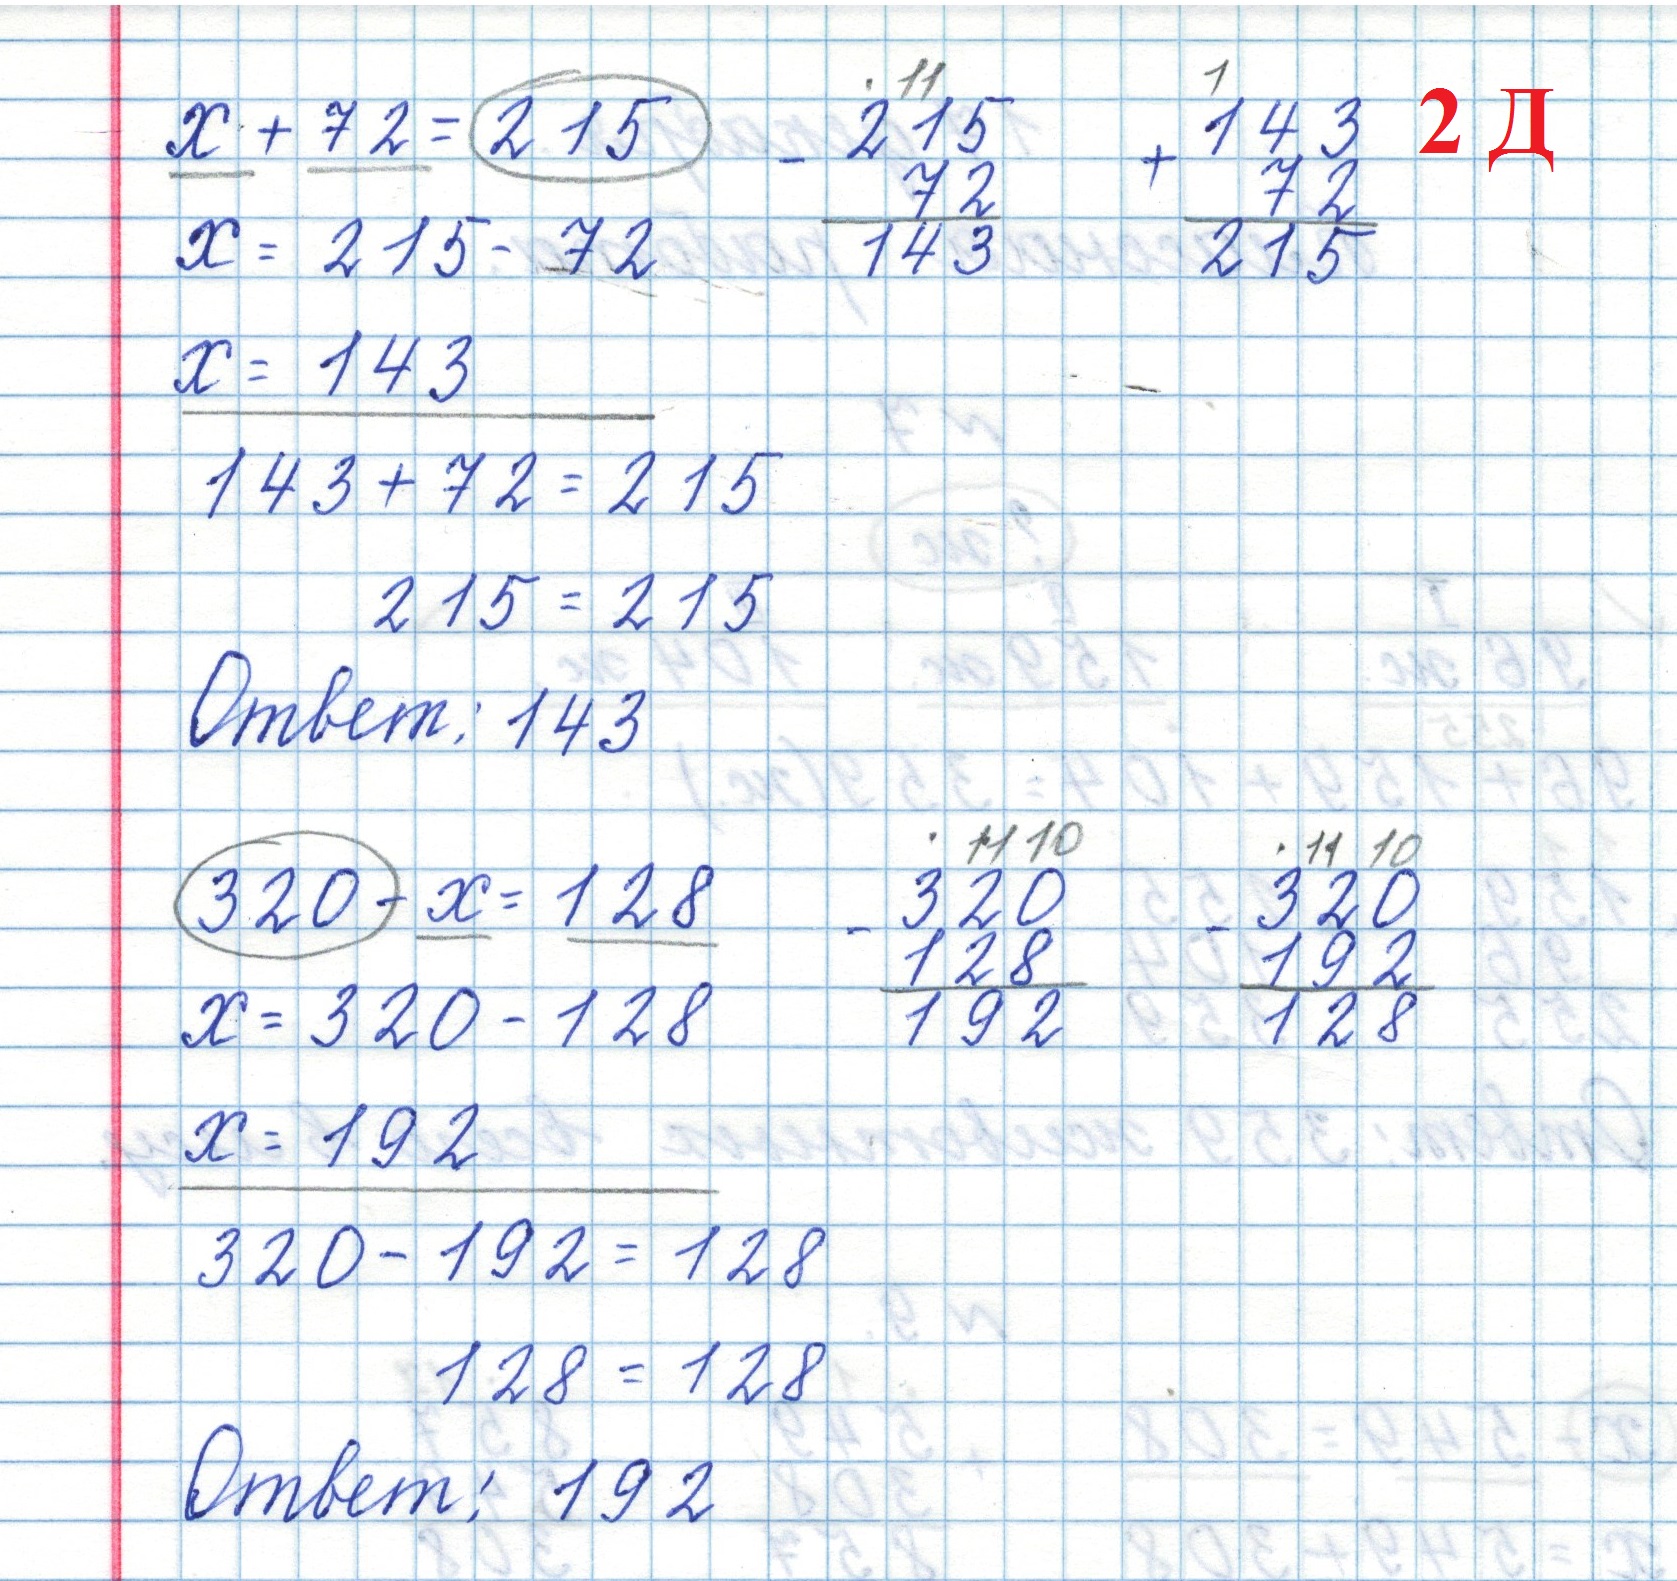 x + 72 = 215
x = 215 - 72
x = 143
143 + 72 = 215
215 = 215
Ответ: 143
· 11
- 215
72
143
1
+ 143
72
215
2 Д
320 - x = 128
x = 320 - 128
x = 192
320 - 192 = 128
128 = 128
Ответ: 192
· 11 10
- 320
128
192
· 11 10
- 320
192
128